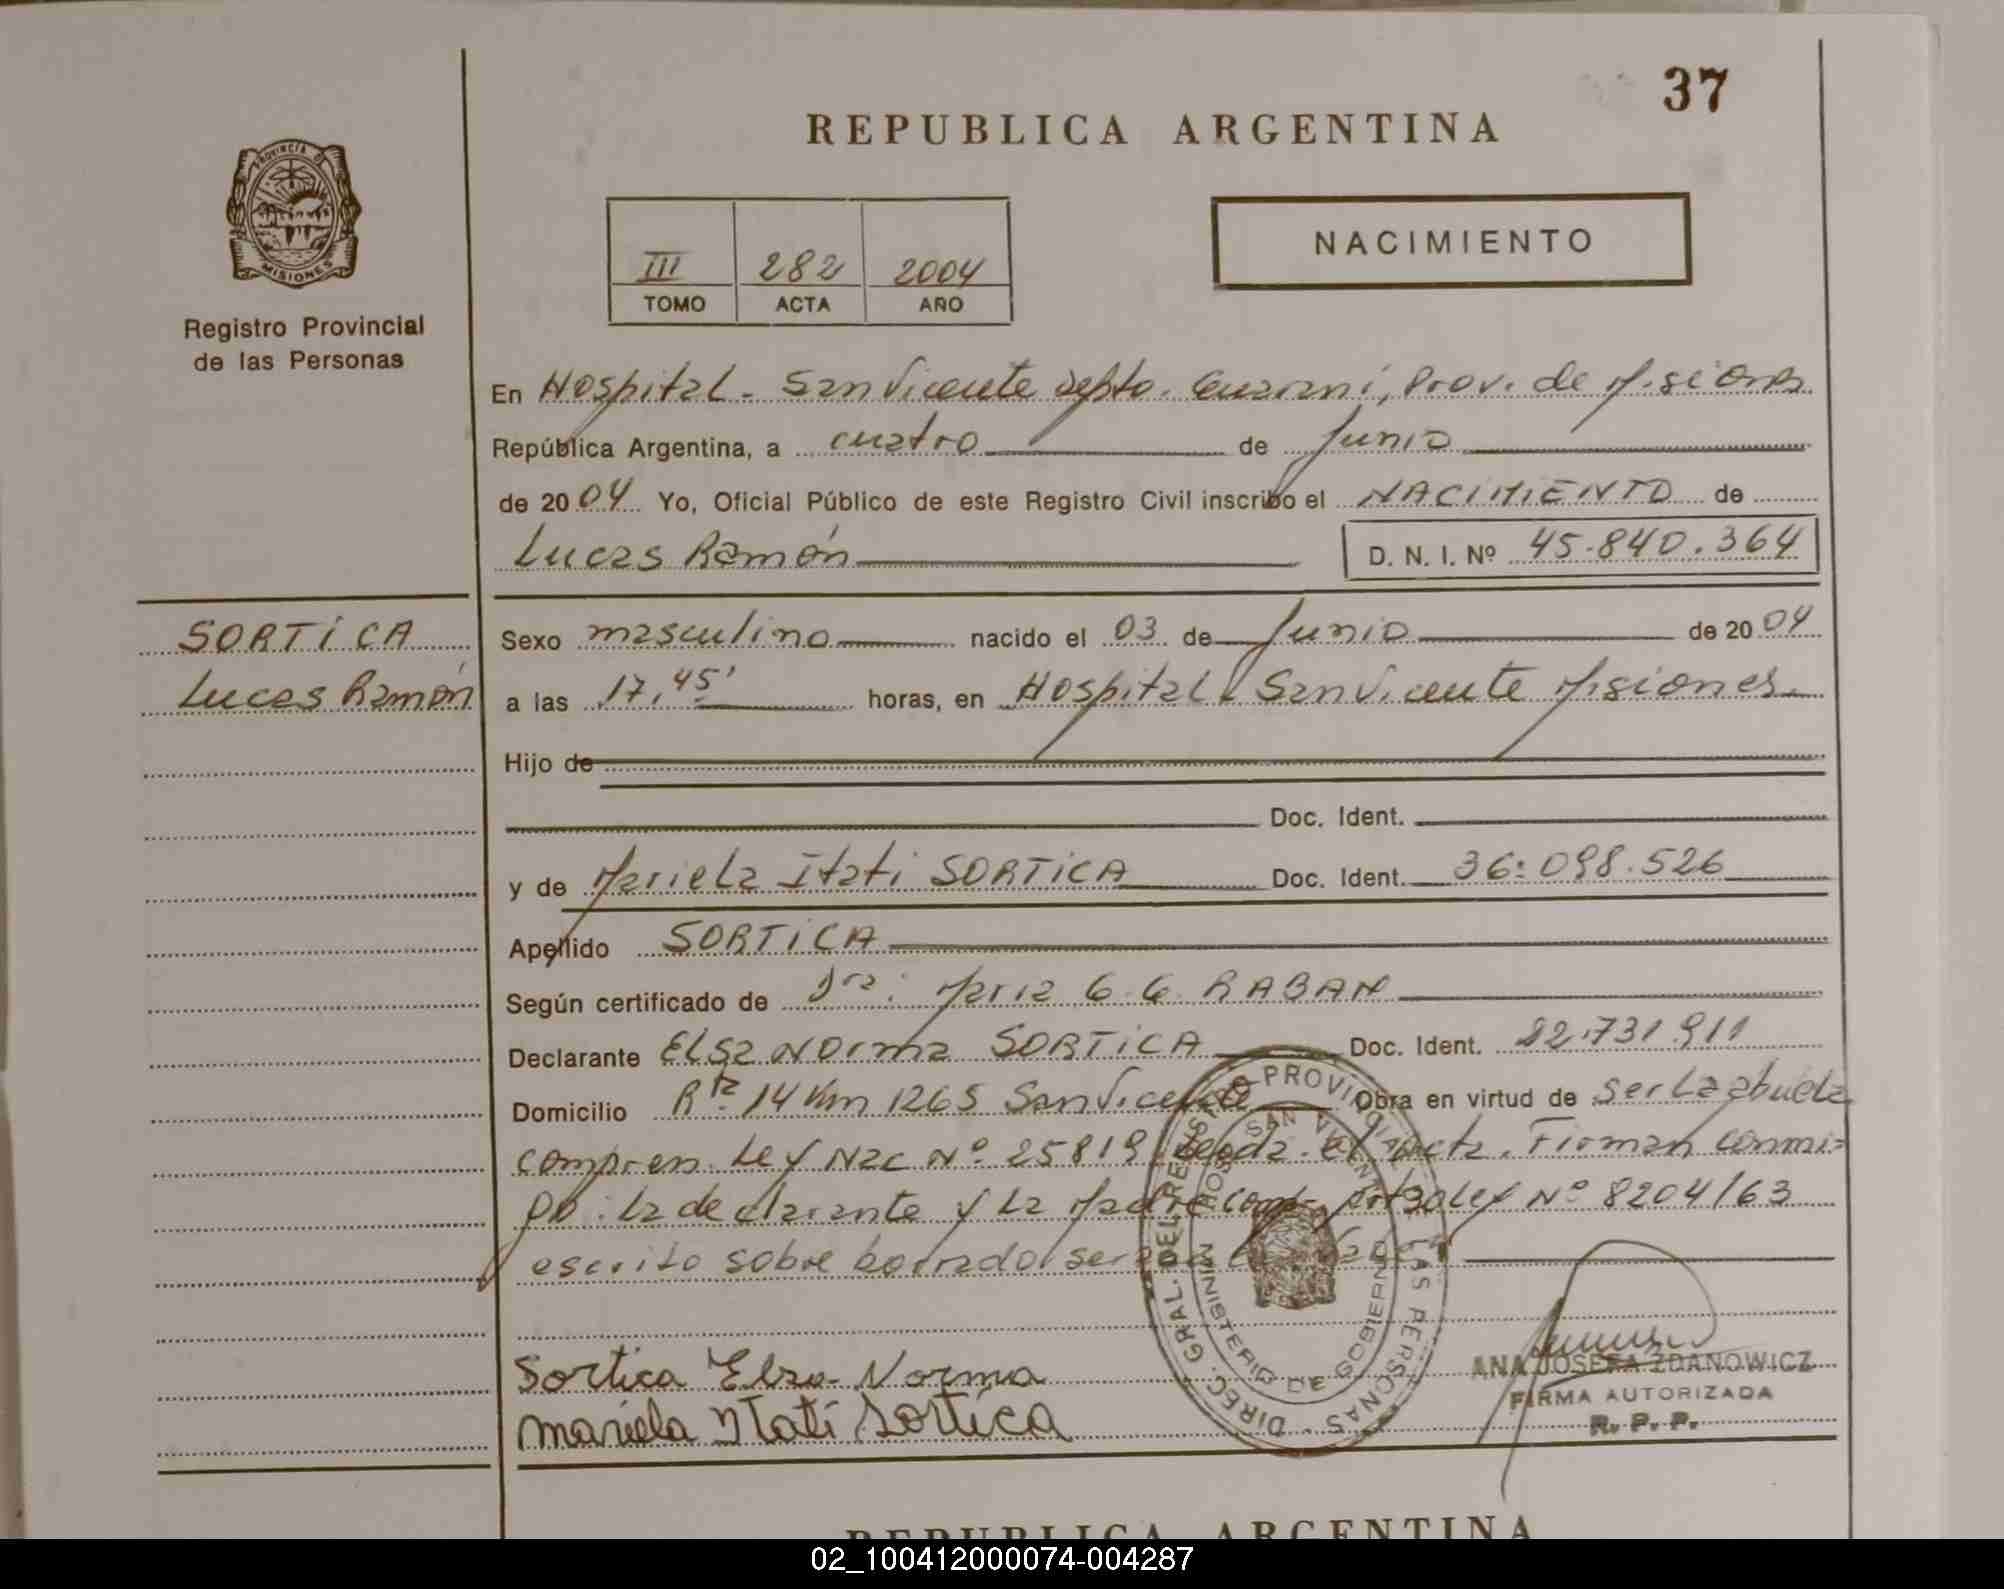 37
REPUBLICA ARGENTINA
PROVINCIA DE
MISIONES
Registro Provincial
de las Personas
III 282 2004
TOMO ACTA AÑO
NACIMIENTO
En Hospital - San Vicente Depto. Guaraní, Prov. de Misiones
República Argentina, a cuatro de Junio
de 2004 Yo, Oficial Público de este Registro Civil inscribo el NACIMIENTO de
Lucas Ramón D. N. I. Nº 45.840.364
SORTICA
Lucas Ramón
Sexo masculino nacido el 03 de Junio de 2004
a las 17,45' horas, en Hospital - San Vicente Misiones.
Hijo de
Doc. Ident.
y de Mariela Itati SORTICA Doc. Ident. 36.098.526
Apellido SORTICA
Según certificado de Dra. Maria G. G. RABAN
Declarante Elsa Norma SORTICA Doc. Ident. 22.731.911
Domicilio Rta 14 Km 1265 San Vicente Obra en virtud de ser La abuela
compren. Ley Nac Nº 25819 Leyda el acta. Firman conmi-
go: la declarante y La Madre comp. Ley Nº 8204/63
escrito sobre borrado
Sortica Elsa Norma
Mariela Itati Sortica
DIREC. GRAL. DEL REGISTRO PROVINCIAL DE LAS PERSONAS
MINISTERIO DE GOBIERNO
SAN VICENTE
ANA JOSEFA ZDANOWICZ
FIRMA AUTORIZADA
R. P. P.
REPUBLICA ARGENTINA
02_100412000074-004287